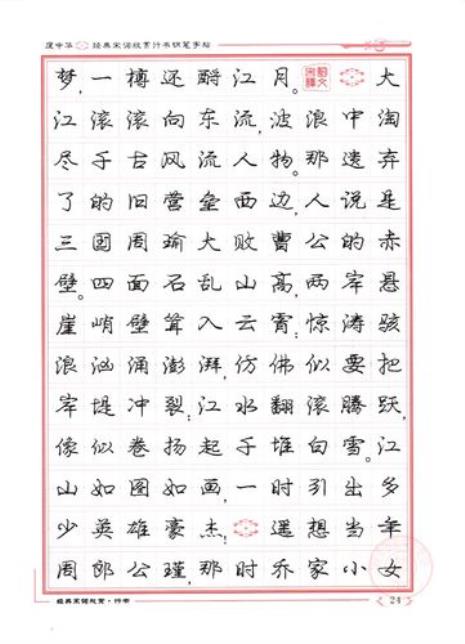 庹中华 经典宋词欣赏行书钢笔字帖
梦,一樽还酹江月。 大
江滚滚向东流,波浪中淘
尽千古风流人物。那遗弃
了的旧营垒西边,人说是
三国周瑜大败曹公的赤
壁。四面石乱山高,两岸悬
崖峭壁耸入云霄;惊涛骇
浪汹涌澎湃,仿佛似要把
岸堤冲裂;江水翻滚腾跃,
像似卷扬起千堆白雪。江
山如图如画,一时引出多
少英雄豪杰; 遥想当年
周郎公瑾,那时乔家小女
经典宋词欣赏·行书 24